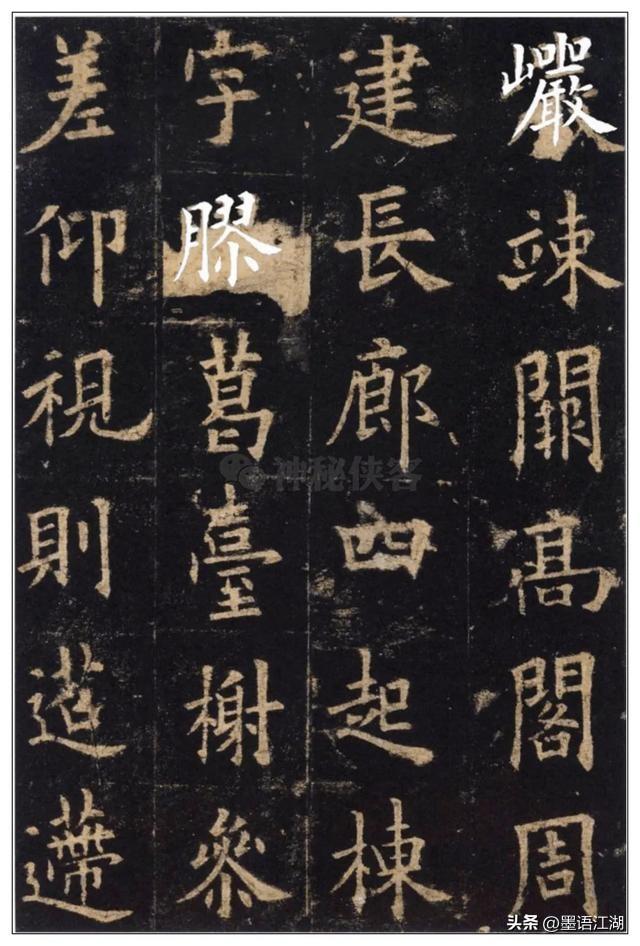 巗竦闕高閣周
建長廊四起棟
宇膠葛臺榭參
差仰視則迢遰
神秘侠客
头条 @墨语江湖